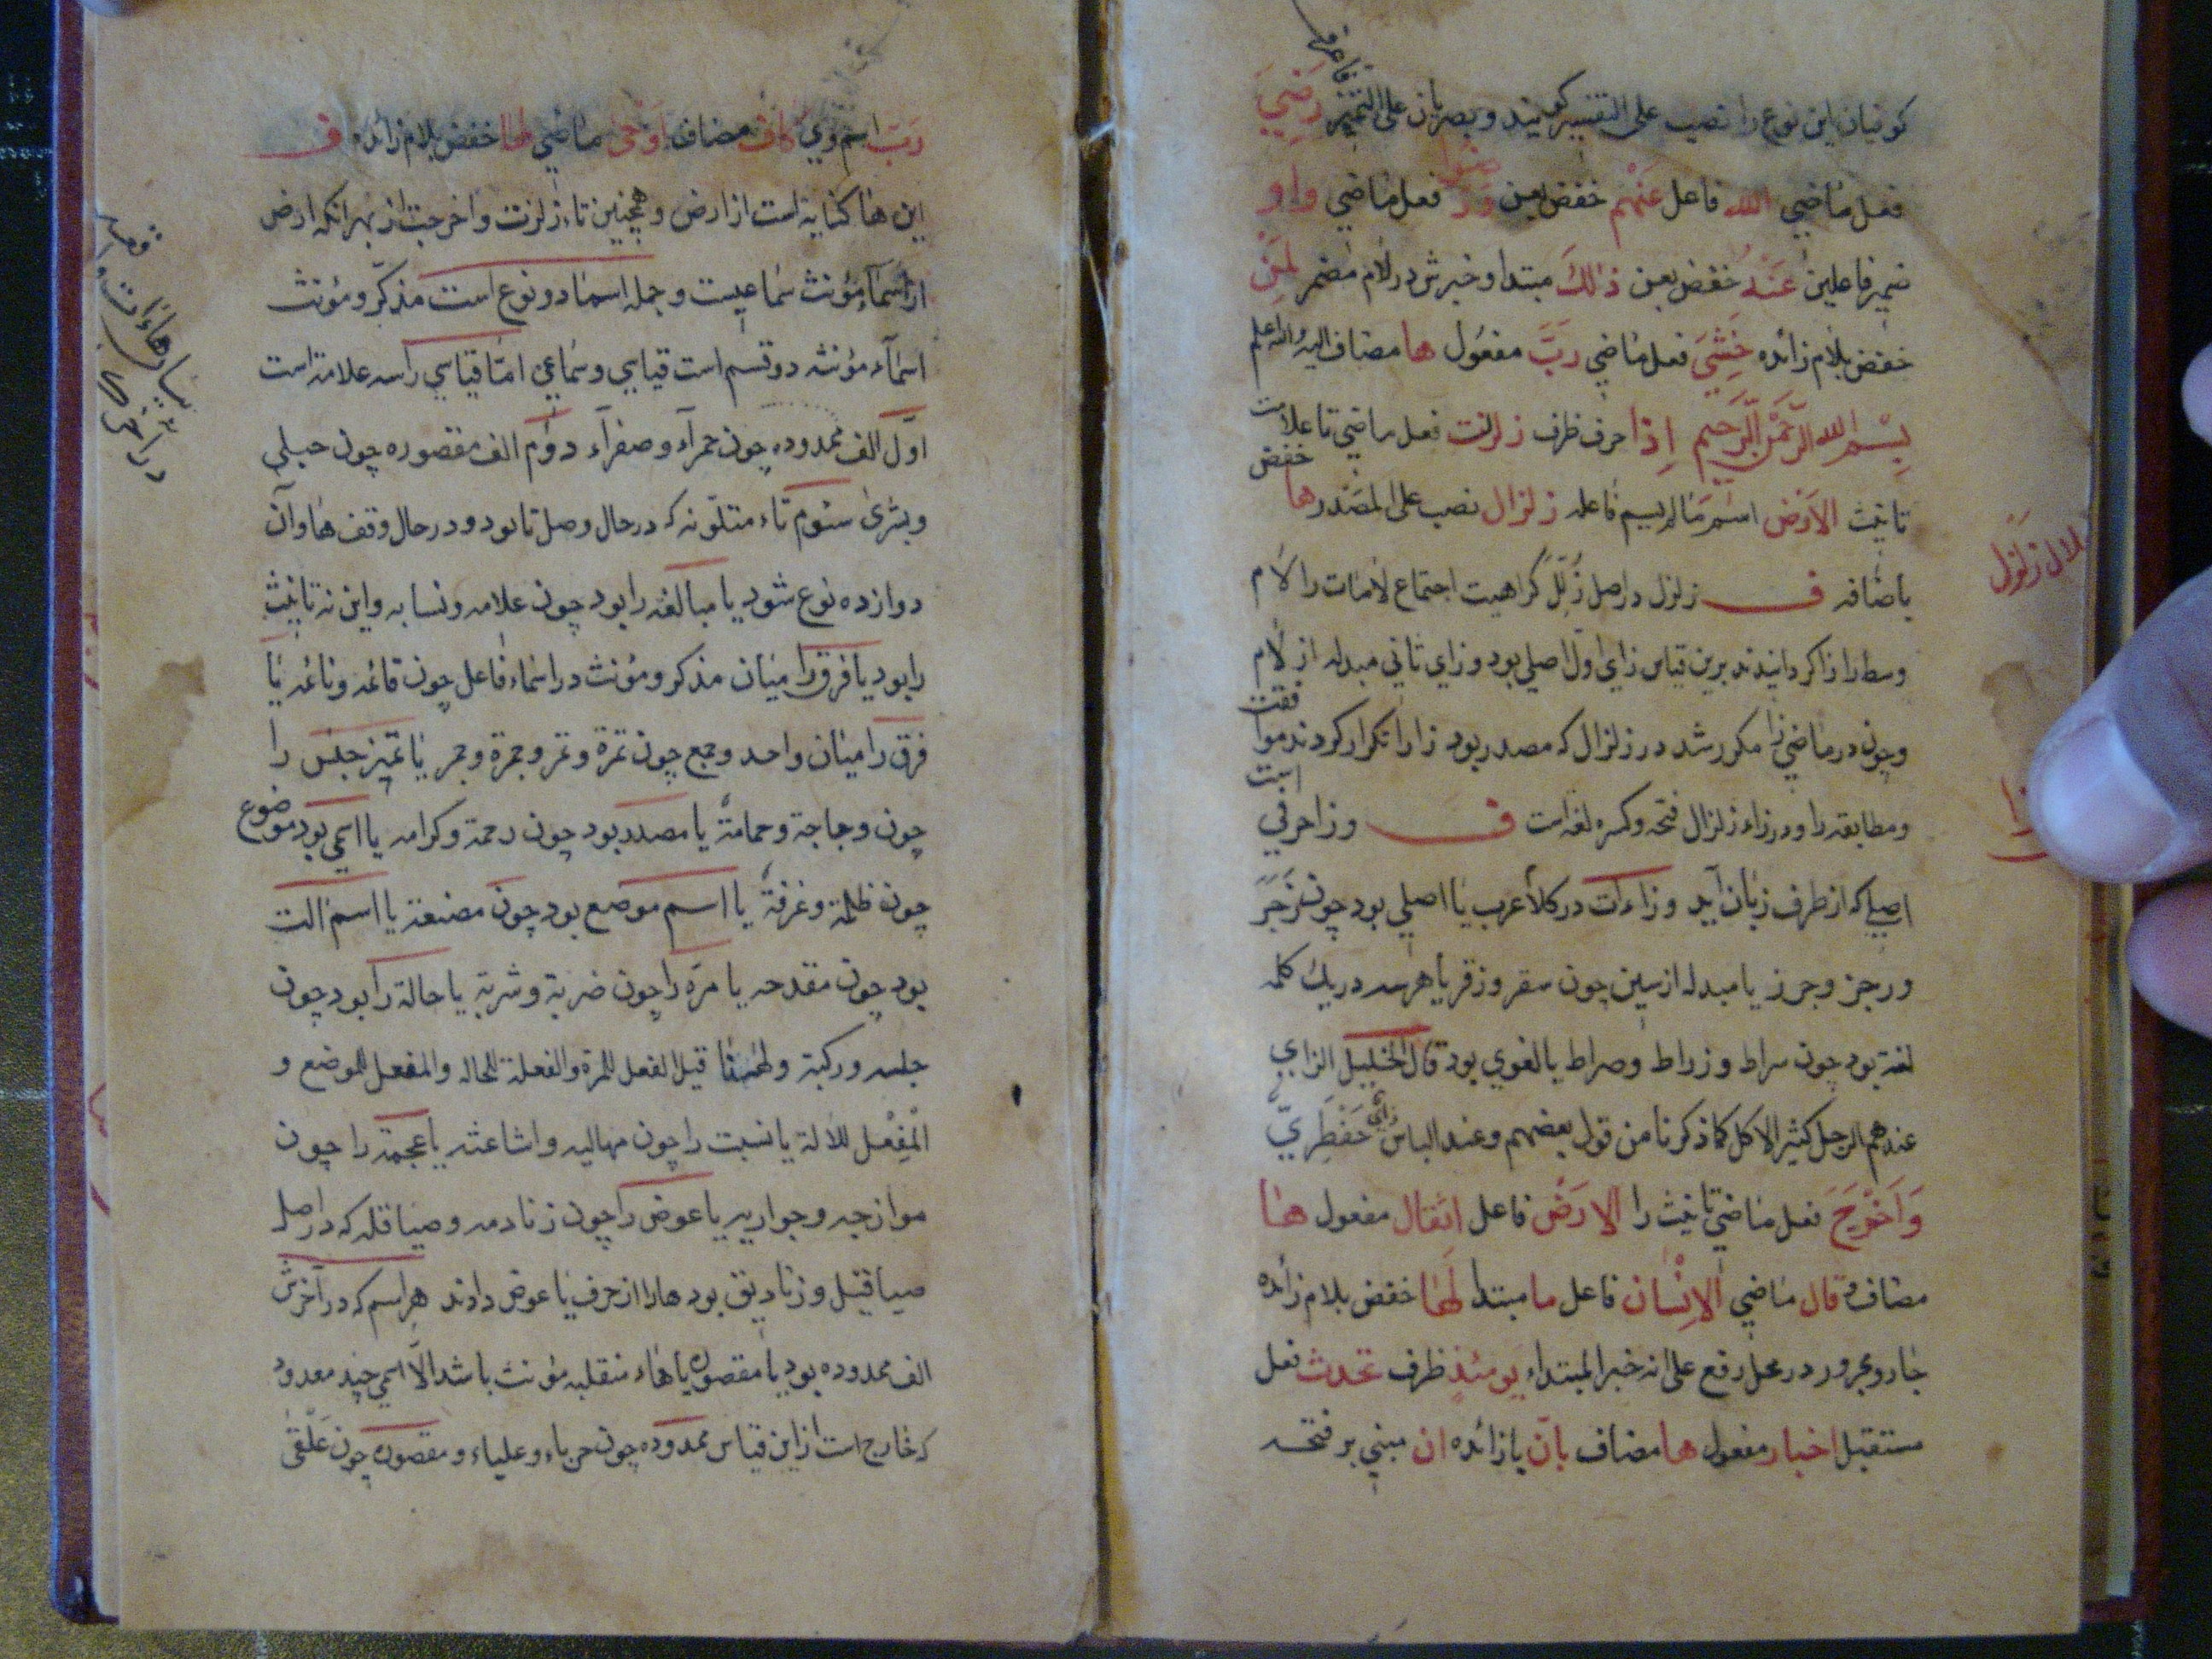 کوفیان این نوع را نصب علی التفسیر گویند و بصریان علی التمییز رَضِيَ
فعل ماضي الله فاعل عَنْهُم خفض بعن وَرَضُوا فعل ماضي واو
ضمیر فاعلین عَنْهُ خفض بعن ذٰلِكَ مبتدا و خبرش در لام مضمر لِمَنْ
خفض بلام زائده خَشِيَ فعل ماضي رَبَّ مفعول ها مضاف الیه والله اعلم
بِسْمِ اللهِ الرَّحْمٰنِ الرَّحِيمِ اِذا حرف ظرف زلزلت فعل ماضي تا علامت
تانیث الاَرْض اسم مَا لم یسم فاعله زلزال نصب علی المصدر ها خفض
باضافه ف زلزل در اصل زُلِّلَ کراهیت اجتماع لامات را لام
وسط را زا گردانیدند برین قیاس زاي اول اصلي بود و زاي ثاني مبدله از لام
و چون در ماضي زا مکرر شد در زلزال که مصدر بود زا را تکرار کردند موافقت
و مطابقه را و در زاء زلزال فتحه و کسره لغه است ف و زا حرفي است
اصلي که از طرف زبان آید و زاءات در کلام عرب یا اصلي بود چون زَجَرَ
و رجز و جرز یا مبدله از سین چون سقر و زقر یا هر سه در یك کلمه
لغة بود چون سراط و زراط و صراط یا لغوي بود قال الخلیل الزاي
عندهم الرجل کثیر الاکل کما ذکرنا من قول بعضهم و عند الباس زاي
وَاَخْرَجَ فعل ماضي تانیث را الارَضُ فاعل اثقال مفعول ها
مضاف و قال ماضي الاِنْسان فاعل ما مبتدا لَهٰا خفض بلام زائده
جار و مجرور در محل رفع علی انه خبر المبتداء یومئذٍ ظرف تحدث فعل
مستقبل اخبار مفعول ها مضاف بان با زائده ان مبني بر فتحه
زلزل
زا
رَبّ اسم وي کاف مضاف اوحی ماضي لها خفض بلام زائده ف
این ها کنایه است از ارض و همچنین تاء زلزلت و اخرجت از بهر آنکه ارض
از اسماء مؤنث سماعیست و جمله اسما دو نوع است مذکّر و مؤنث
اسمآء مؤنثه دو قسم است قیاسي و سماعي امّا قیاسي را سه علامة است
اوّل الف ممدوده چون حمرآء و صفرآء دوُم الف مقصوره چون حبلي
و بشری سیُوم تاء متلوّنه که در حال وصل تا بود و در حال وقف ها و آن
دوازده نوع شود یا مبالغه را بود چون علامه و نسابه و این نه تانیث
را بود یا فرق را میان مذکر و مؤنث در اسماء فاعل چون قائمه و نائمه یا
فرق را میان واحد و جمع چون تمرة و تمر و جمرة و جمر یا تمییز جنس را
چون دجاجة و حمامة یا مصدر بود چون رحمة و کرامه یا اسمي بود موضوع
چون ظلمة و غرفة یا اسم موضع بود چون مصنعة یا اسم الت
بود چون مقدحه یا مرّه را چون ضربة و شربة یا حالة را بود چون
جلسه و رکبة و لهٰذا قیل الفعل للمرة و الفعلة للحاله و المفعل للموضع و
الْمِفْعل للالة یا نسبت را چون مهالبه و اشاعثه یا عجمة را چون
موازجه و جواربه یا عوض را چون زنادمه و صیاقله که در اصل
صیاقیل و زنادیق بود ها را از حرف یا عوض دادند هر اسم که در آخرش
الف ممدوده بود یا مقصوره یا هاء منقلبه مؤنث باشد الّا اسمي چند معدود
که خارج است از این قیاس ممدوده چون حرباء و علیاء و مقصوره چون عَلْقیٰ